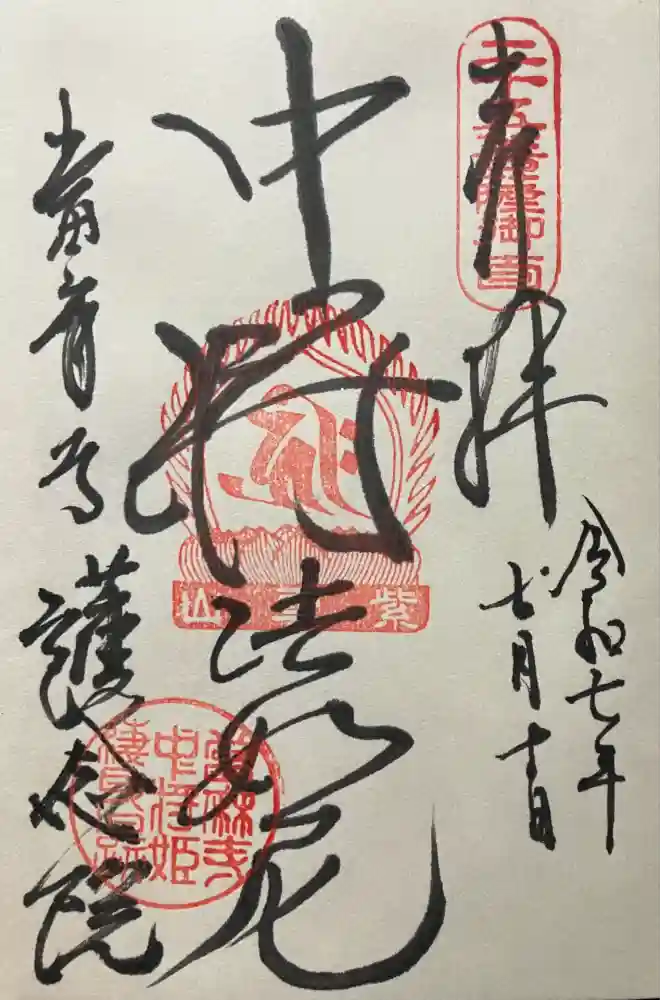 奉拝
令和七年
七月
中将法如尼
紫雲山
當麻寺
中将姫
當麻寺
護念院